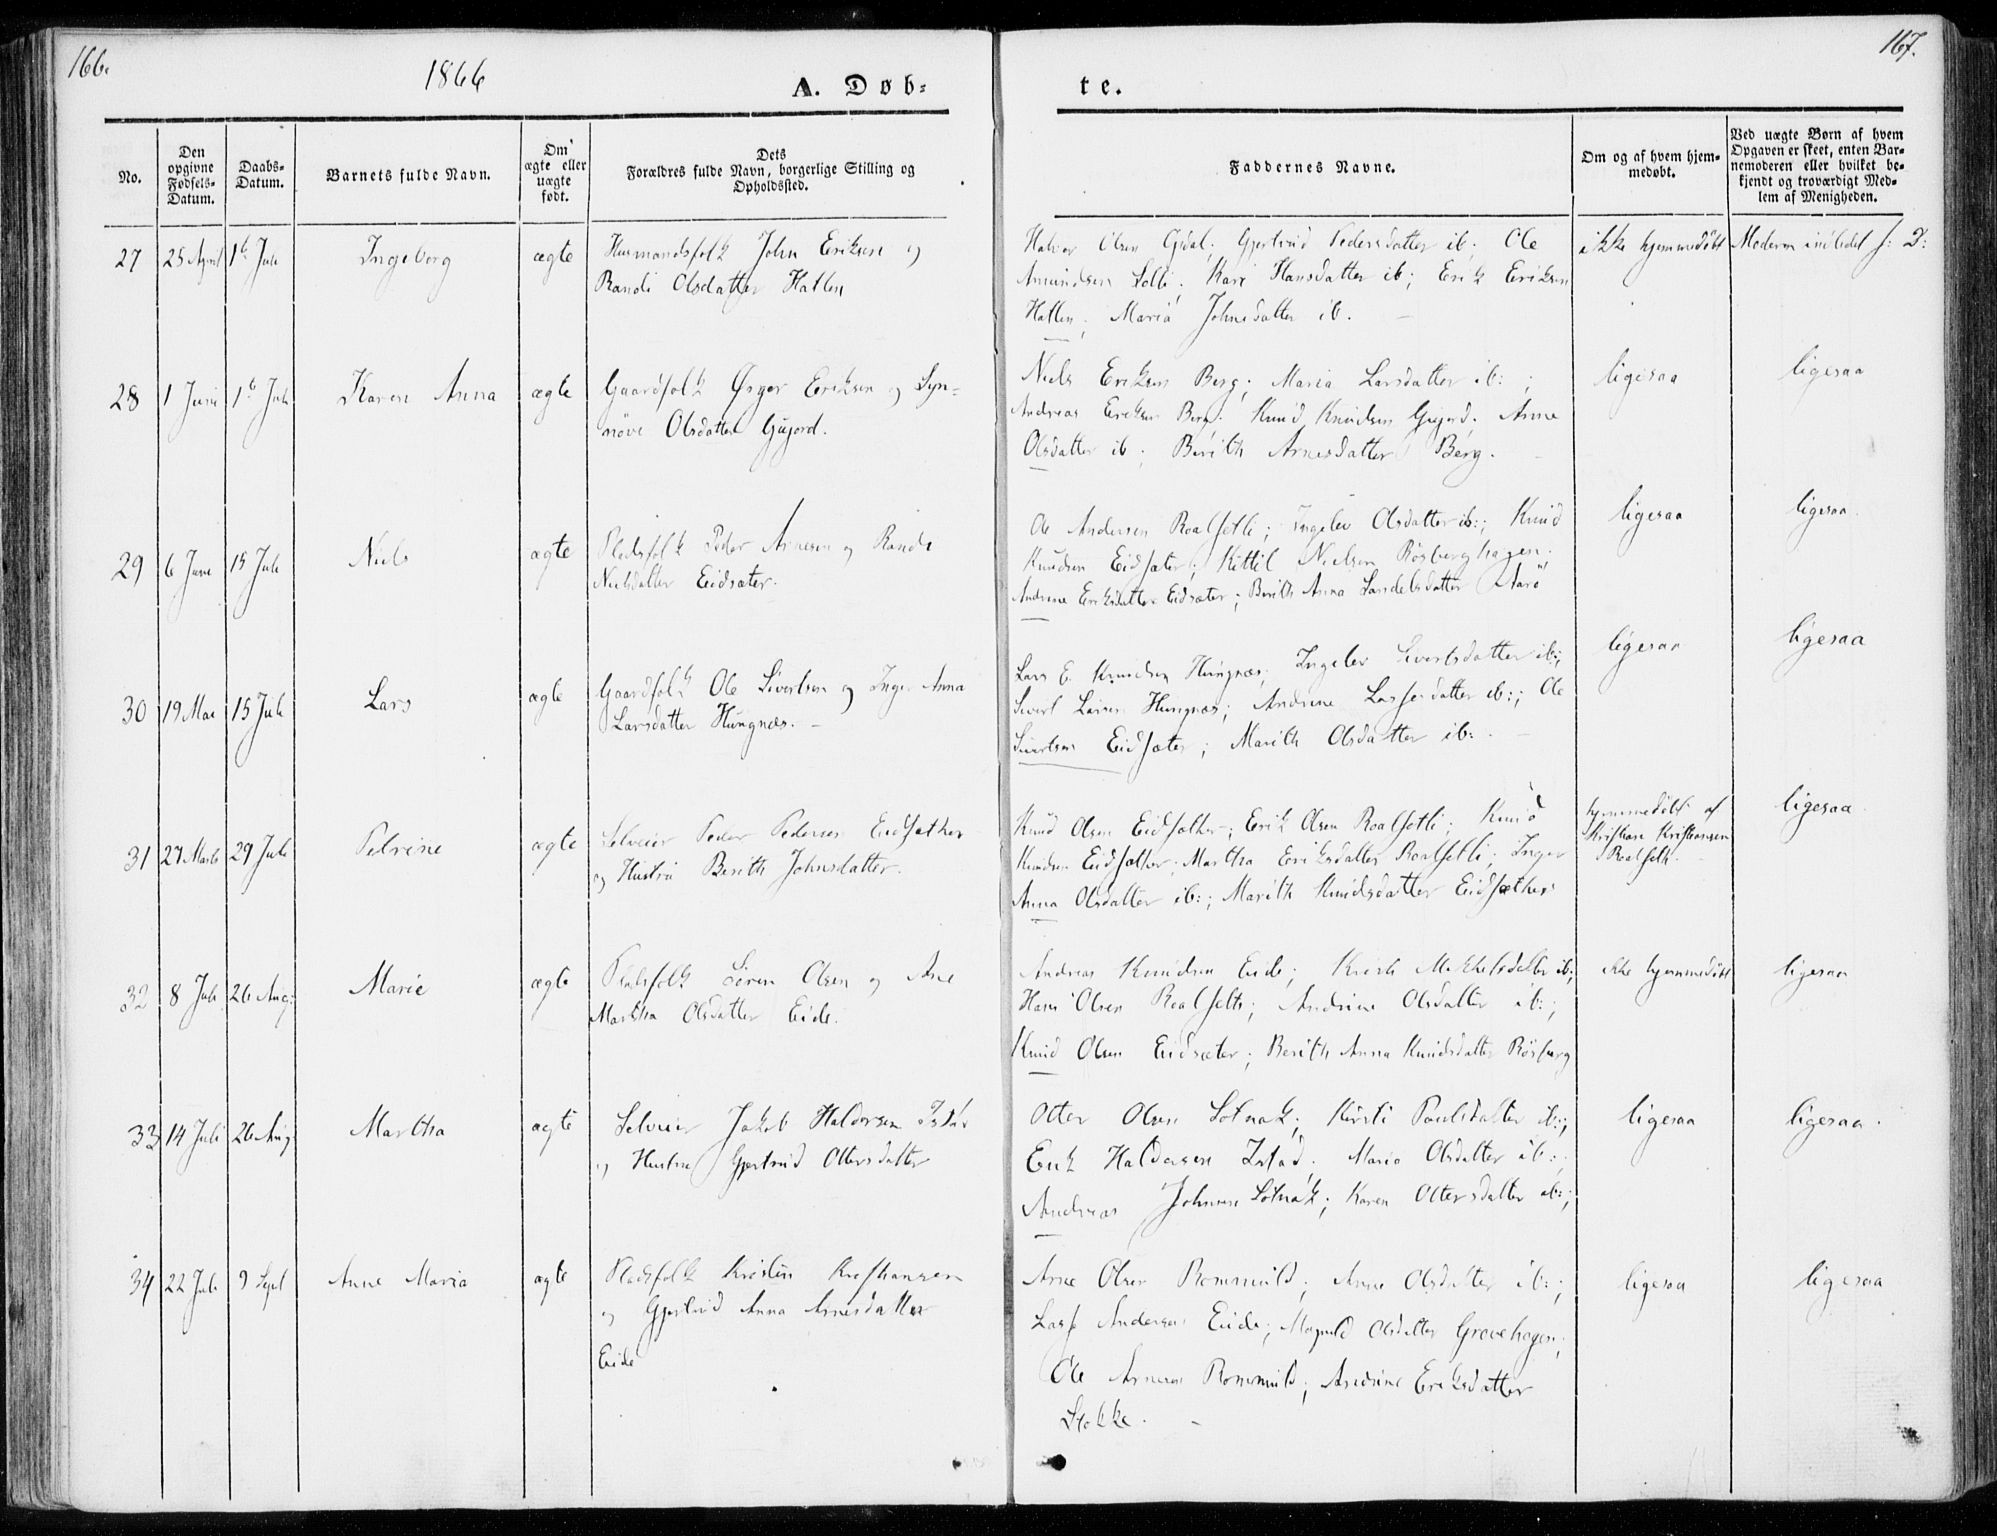 166.
1866
A. Døb-
te.
167.
No.
Den opgivne Fødsels-Datum.
Daabs-Datum.
Barnets fulde Navn.
Om ægte eller uægte født.
Dets
Forældres fulde Navn, borgerlige Stilling og
Opholdssted.
Faddernes Navne.
Om og af hvem hjem-
medøbt.
Ved uægte Børn af hvem
Opgaven er skeet, enten Bar-
nemoderen eller hvilket be-
kjendt og troværdigt Med-
lem af Menigheden.
27 25 April 1ste Juli Ingeborg ægte Husmandsfolk John Eriksen og
Randi Olsdatter Hatlen
Halvor Olsen Gjerstad Pedersdatter ib; Ole
Amundsen Solli; Kari Hansdatter ib; Erik Eriksen
Hatlen; Maria Johnsdatter ib.
ikke hjemmedøbt
Moderen indledet
28 1 Juni 1ste Juli Karen Anna ægte Gaardfolk Eriksen og Syn-
növe Olsdatter Gujord.
Niels Eriksen Berg; Maria Larsdatter ib:;
Andreas Eriksen Berg; Knud Knudsen Gujord; Anne
Olsdatter ib; Berith Arnesdatter Berg.
ligesaa
ligesaa
29 6 Juni 15 Juli Niels ægte Pladsfolk Peder Arnesen og Randi
Nielsdatter Eidsæter.
Ole Andersen Roalsetli; Ingelev Olsdatter ib:; Knud
Knudsen Eidsæter; Kittil Nielsen Rösberghagen;
Andrine Eriksdatter Eidsæter; Berith Anna Aarö
ligesaa
ligesaa
30 19 Mai 15 Juli Lars ægte Gaardfolk Ole Sivertsen og Inger Anna
Larsdatter Hungnæs.
Lars E. Knudsen Hungnæs; Ingelev Sivertsdatter ib:;
Sivert Larsen Hungnæs; Andrine Lassesdatter ib:; Ole
Sivertsen Eidsæter; Marith Olsdatter ib:
ligesaa
ligesaa
31 27 Marts 29 Juli Petrine ægte Selveier Peder Pedersen Eidsæther
og Hustru Berith Johnsdatter.
Knud Olsen Eidsæther; Erik Olsen Roalsetli; Knud
Knudsen Eidsæther; Martha Eriksdatter Roalsetli; Inger
Anna Olsdatter ib:; Marith Knudsdatter Eidsæther
hjemmedöbt af
Kristian Kristiansen
Roalsetli.
ligesaa
32 8 Juli 26 Aug: Marie ægte Pladsfolk Sören Olsen og Ane
Martha Olsdatter Eide.
Andreas Knudsen Eide; Kirsti Mikkelsdatter ib:;
Hans Olsen Roalsetli; Andrine Olsdatter ib:;
Knud Olsen Eidsæter; Berith Anna Knudsdatter Rösberg
ikke hjemmedöbt
ligesaa
33 14 Juli 26 Aug: Martha ægte Selveier Jakob Haldorsen Istad
og Hustru Gjertrud Ottersdatter
Otter Olsen Solnak; Kirsti Paulsdatter ib:;
Erik Haldorsen Istad; Maria Olsdatter ib:;
Andreas Johnsen Solnak; Karen Ottersdatter ib:;
ligesaa
ligesaa.
34 22 Juli 9 Sept Anne Maria ægte Pladsfolk Kristen Kristiansen
og Gjertrud Anna Arnesdatter
Eide
Arne Olsen Rommuld; Anne Olsdatter ib:;
Lasse Andersen Eide; Magnild Olsdatter Grovehagen;
Ole Arnesen Rommuld; Andrine Eriksdatter
Stokke.
ligesaa
ligesaa